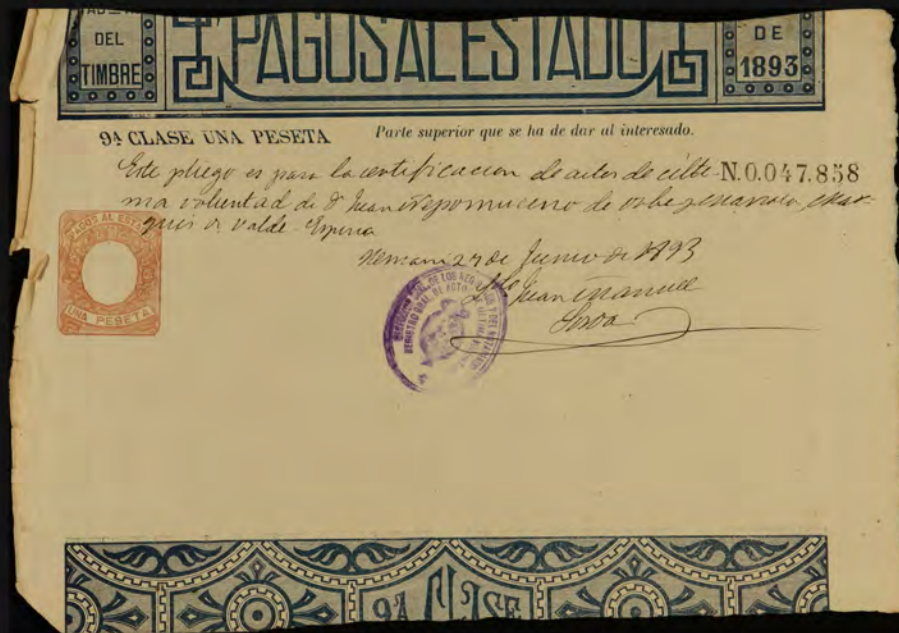 DEL
TIMBRE
PAGOS AL ESTADO
DE
1893
9ª CLASE UNA PESETA
Parte superior que se ha de dar al interesado.
Este pliego es para la certificacion de actos de últi- N.0.047.858
ma voluntad de Dⁿ Juan Nepomuceno de mar-
qués de Valde-Espina
Hernani 27 de Junio de 1893
Juan Manuel
PAGOS AL ESTADO
UNA PESETA
REGISTRO GRAL. DE ACTOS
9ª CLASE